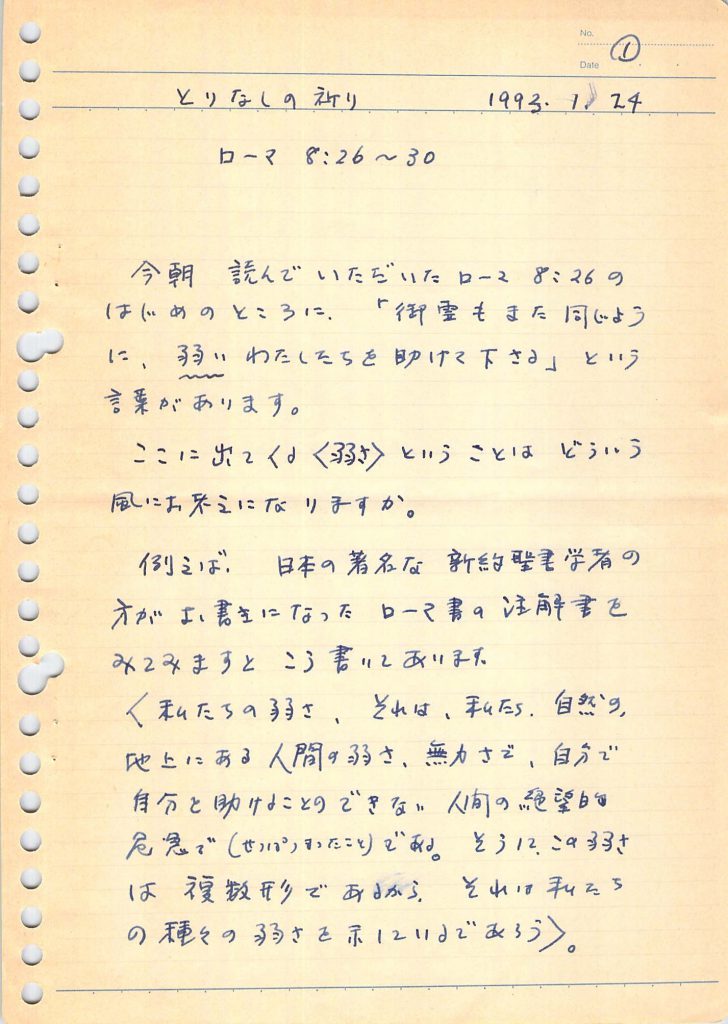 No. ①
Date
とりなしの祈り 1993. 1. 24
ローマ 8:26〜30
今朝 読んでいただいたローマ 8:26の
はじめのところに、「御霊もまた同じよう
に、弱いわたしたちを助けて下さる」という
言葉があります。
ここに出てくる〈弱さ〉ということは どういう
風にお考えになりますか。
例えば、日本の著名な新約聖書学者の
方がお書きになったローマ書の注解書を
みてみますと こう書いてあります
〈私たちの弱さ、それは、私たち、自然の、
地上にある人間の弱さ、無力さで、自分で
自分を助けることのできない 人間の絶望的
危急で(せっぱつまったこと)である。そうして、この弱さ
は 複数形であるから、それは私たち
の種々の弱さを示しているであろう〉。